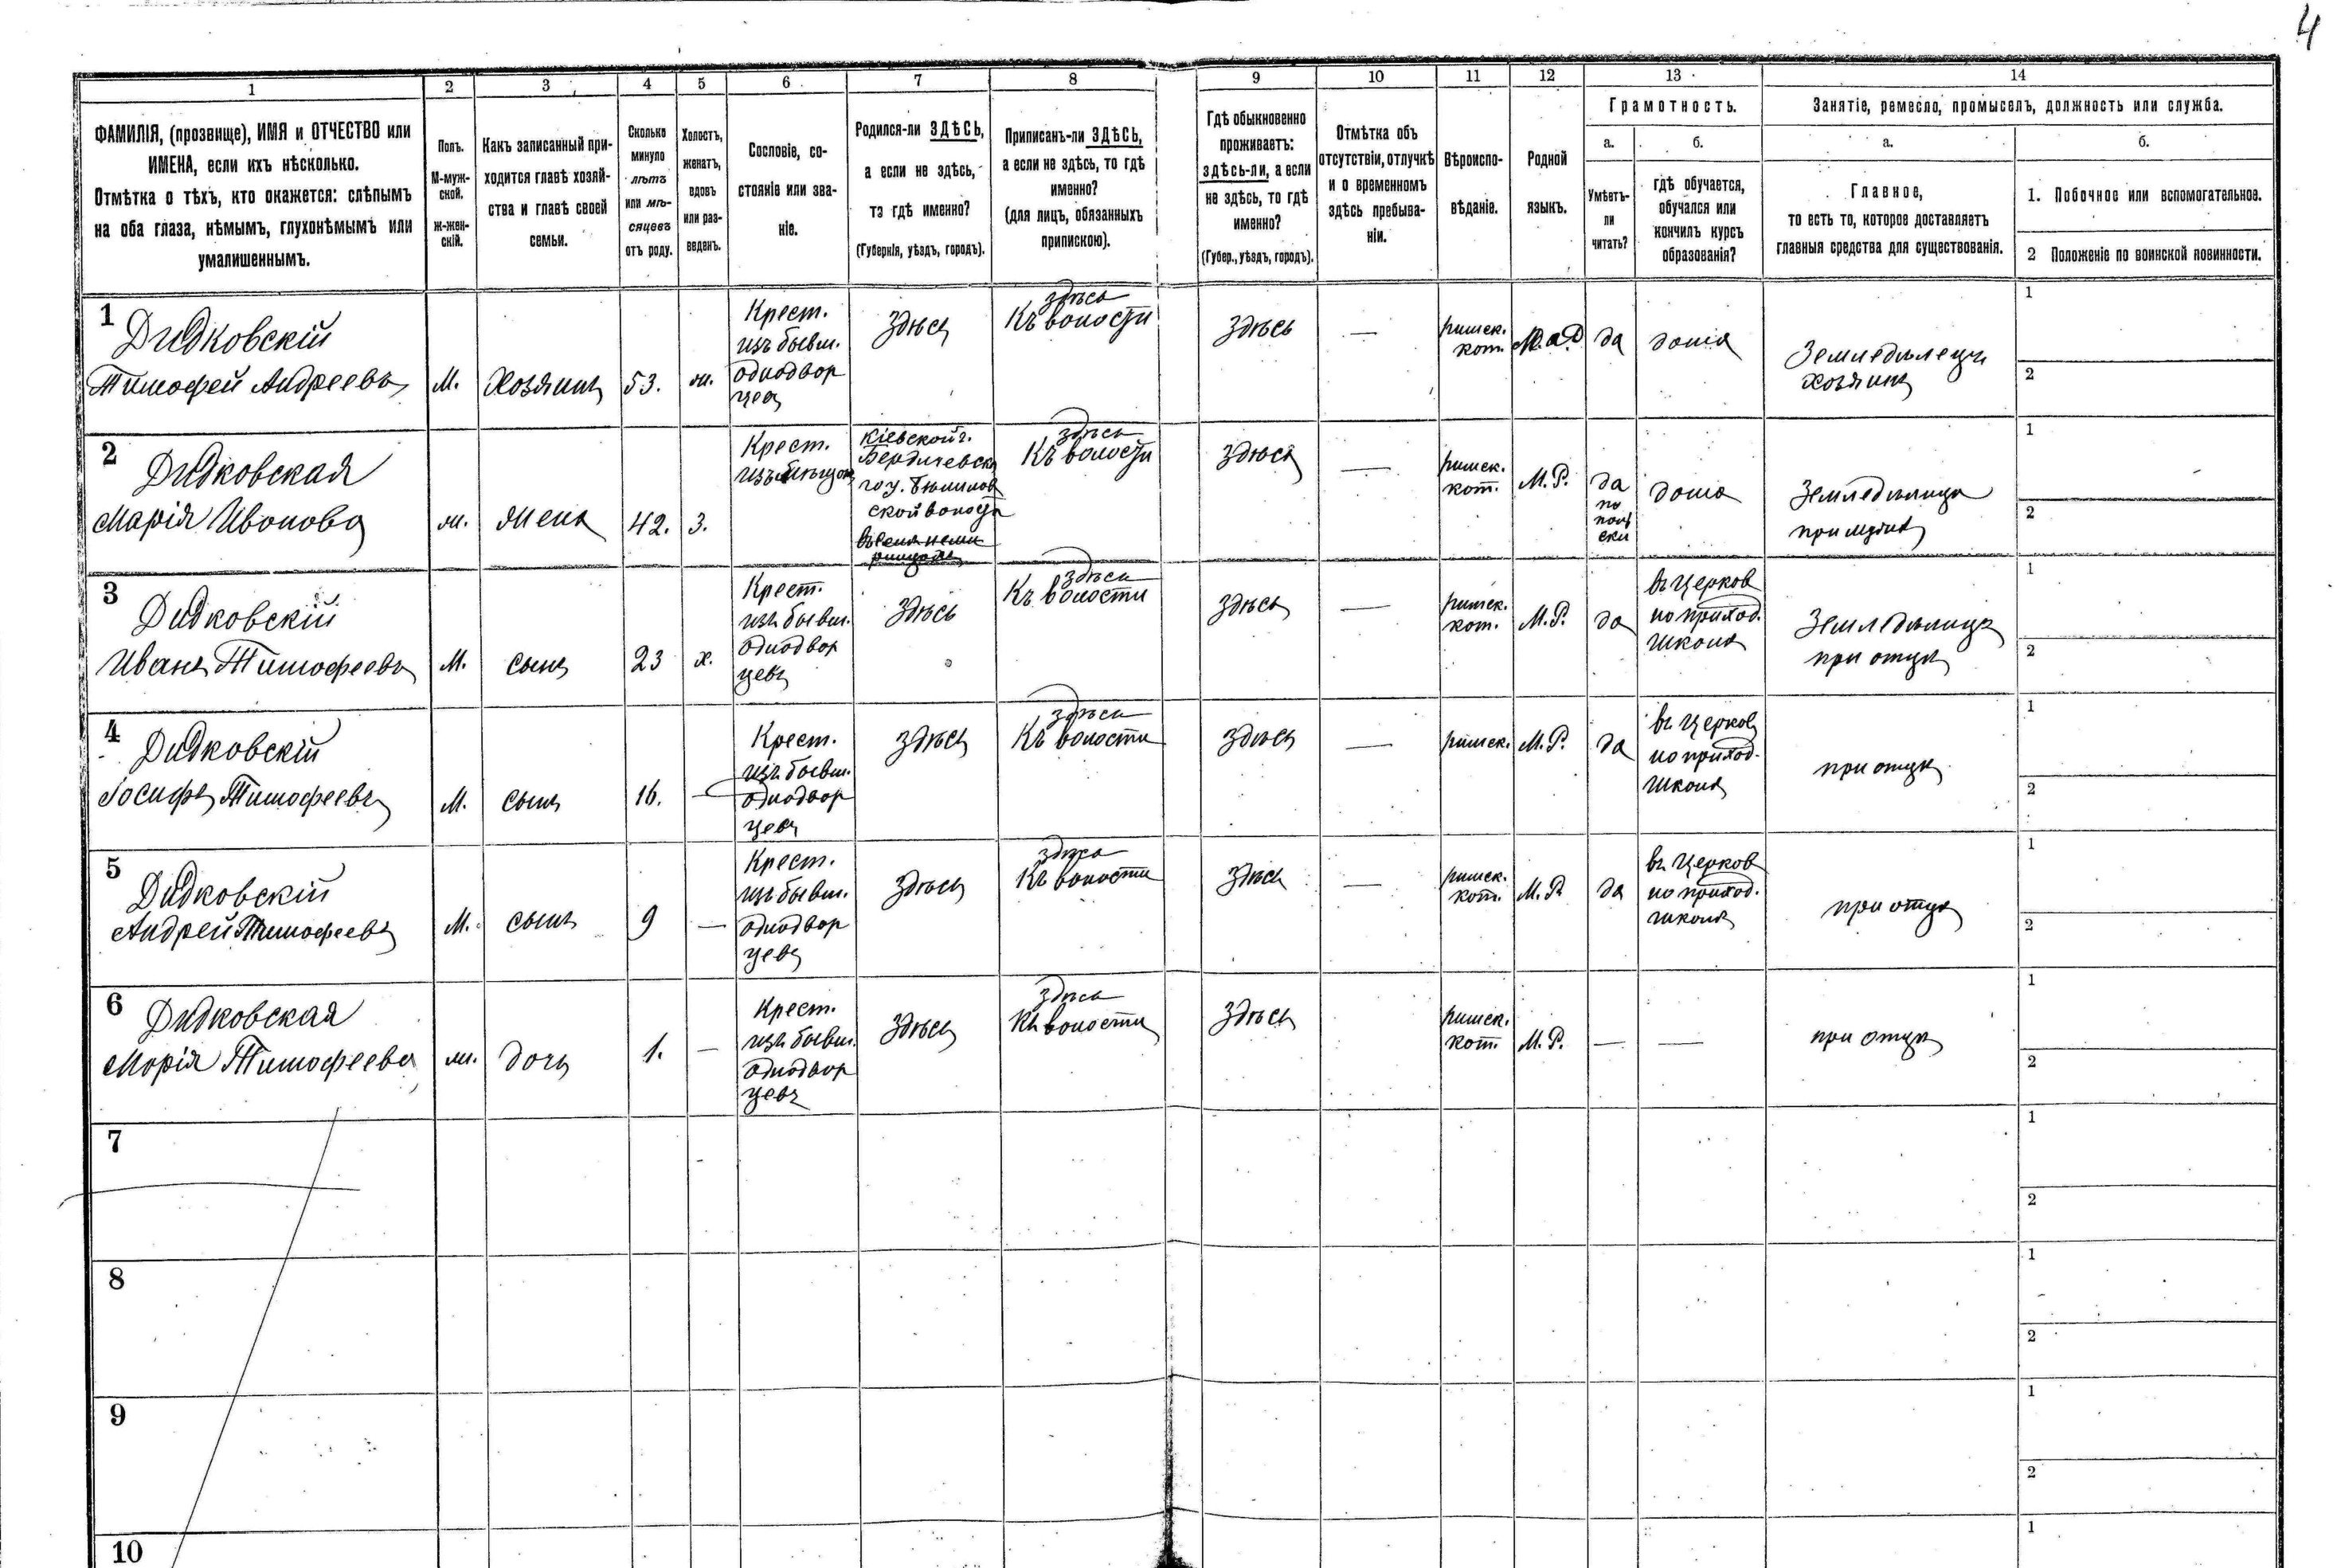 4
1
2
3
4
5
6
7
8
9
10
11
12
13
14
ФАМИЛІЯ, (прозвище), ИМЯ и ОТЧЕСТВО или
ИМЕНА, если ихъ нѣсколько.
Отмѣтка о тѣхъ, кто окажется: слѣпымъ
на оба глаза, нѣмымъ, глухонѣмымъ или
умалишеннымъ.
Полъ.
М-муж-
ской.
ж-жен-
скій.
Какъ записанный при-
ходится главѣ хозяй-
ства и главѣ своей
семьи.
Сколько
минуло
лѣтъ
или мѣ-
сяцевъ
отъ роду.
Холостъ,
женатъ,
вдовъ
или раз-
веденъ.
Сословіе, со-
стояніе или зва-
ніе.
Родился-ли ЗДѢСЬ,
а если не здѣсь,
то гдѣ именно?
(Губернія, уѣздъ, городъ).
Приписанъ-ли ЗДѢСЬ,
а если не здѣсь, то гдѣ
именно?
(для лицъ, обязанныхъ
припискою).
Гдѣ обыкновенно
проживаетъ:
здѣсь-ли, а если
не здѣсь, то гдѣ
именно?
(Губер., уѣздъ, городъ).
Отмѣтка объ
отсутствіи, отлучкѣ
и о временномъ
здѣсь пребыва-
ніи.
Вѣроиспо-
вѣданіе.
Родной
языкъ.
Грамотность.
а.
Умѣетъ-
ли
читать?
б.
гдѣ обучается,
обучался или
кончилъ курсъ
образованія?
Занятіе, ремесло, промыселъ, должность или служба.
а.
Главное,
то есть то, которое доставляетъ
главныя средства для существованія.
б.
1. Побочное или вспомогательное.
2 Положеніе по воинской повинности.
1
Дидковскій
Тимофей Андреевъ
М.
Хозяинъ
53.
ж.
Крест.
изъ бывш.
однодвор
цевъ
здѣсь
здѣсь
Къ волости
здѣсь
—
римск.
кат.
да
дома
Земледѣлецъ
хозяинъ
1
2
2
Дидковская
Марія Иванова
ж.
Жена
42.
з.
Крест.
Кіевской г.
Бердичевска
го у.
ской волости
здѣсь
Къ волости
здѣсь
—
римск.
кат.
М.Р.
да
по
поль
ски
дома
Земледѣлица
при мужѣ
1
2
3
Дидковскій
Иванъ Тимофеевъ
М.
сынъ
23
х.
Крест.
изъ бывш.
однодвор
цевъ
здѣсь
здѣсь
Къ волости
здѣсь
—
римск.
кат.
М.Р.
да
въ церков
но приход.
школѣ
Земледѣлецъ
при отцѣ
1
2
4
Дидковскій
Іосифъ Тимофеевъ
М.
сынъ
16.
—
Крест.
изъ бывш.
однодвор
цевъ
здѣсь
здѣсь
Къ волости
здѣсь
—
римск.
М.Р.
да
въ церков
но приход.
школѣ
при отцѣ
1
2
5
Дидковскій
Андрей Тимофеевъ
М.
сынъ
9
—
Крест.
изъ бывш.
однодвор
цевъ
здѣсь
здѣсь
Къ волости
здѣсь
—
римск.
кат.
М.Р.
да
въ церков
но приход.
школѣ
при отцѣ
1
2
6
Дидковская
Марія Тимофеева
ж.
дочь
1.
—
Крест.
изъ бывш.
однодвор
цевъ
здѣсь
здѣсь
Къ волости
здѣсь
римск.
кат.
М.Р.
—
—
при отцѣ
1
2
7
1
2
8
1
2
9
1
2
10
1